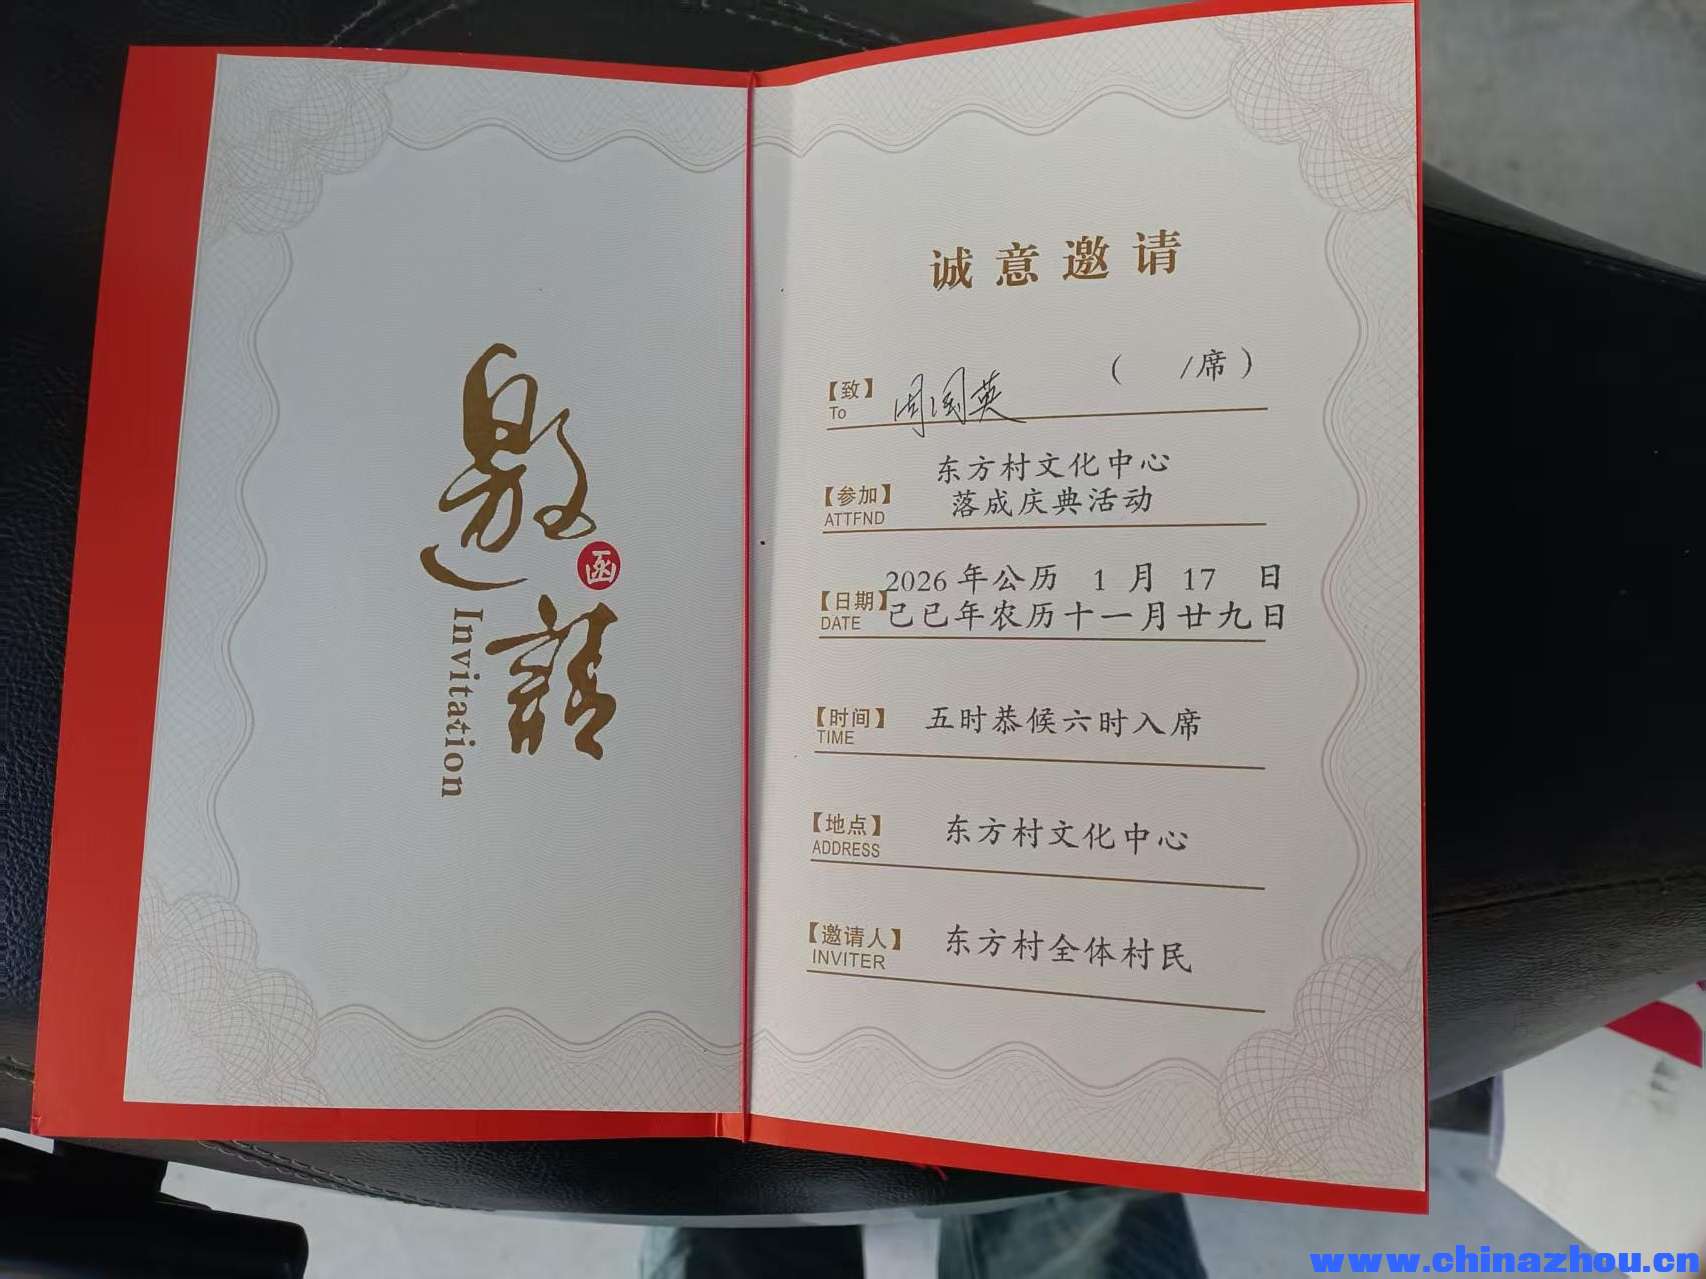 邀請
函
Invitation
诚意邀请
【致】 周国英 （ 1席）
To
东方村文化中心
【参加】 落成庆典活动
ATTFND
2026年公历 1 月 17 日
【日期】己巳年农历十一月廿九日
DATE
【时间】 五时恭候六时入席
TIME
【地点】 东方村文化中心
ADDRESS
【邀请人】 东方村全体村民
INVITER
www.chinazhou.cn